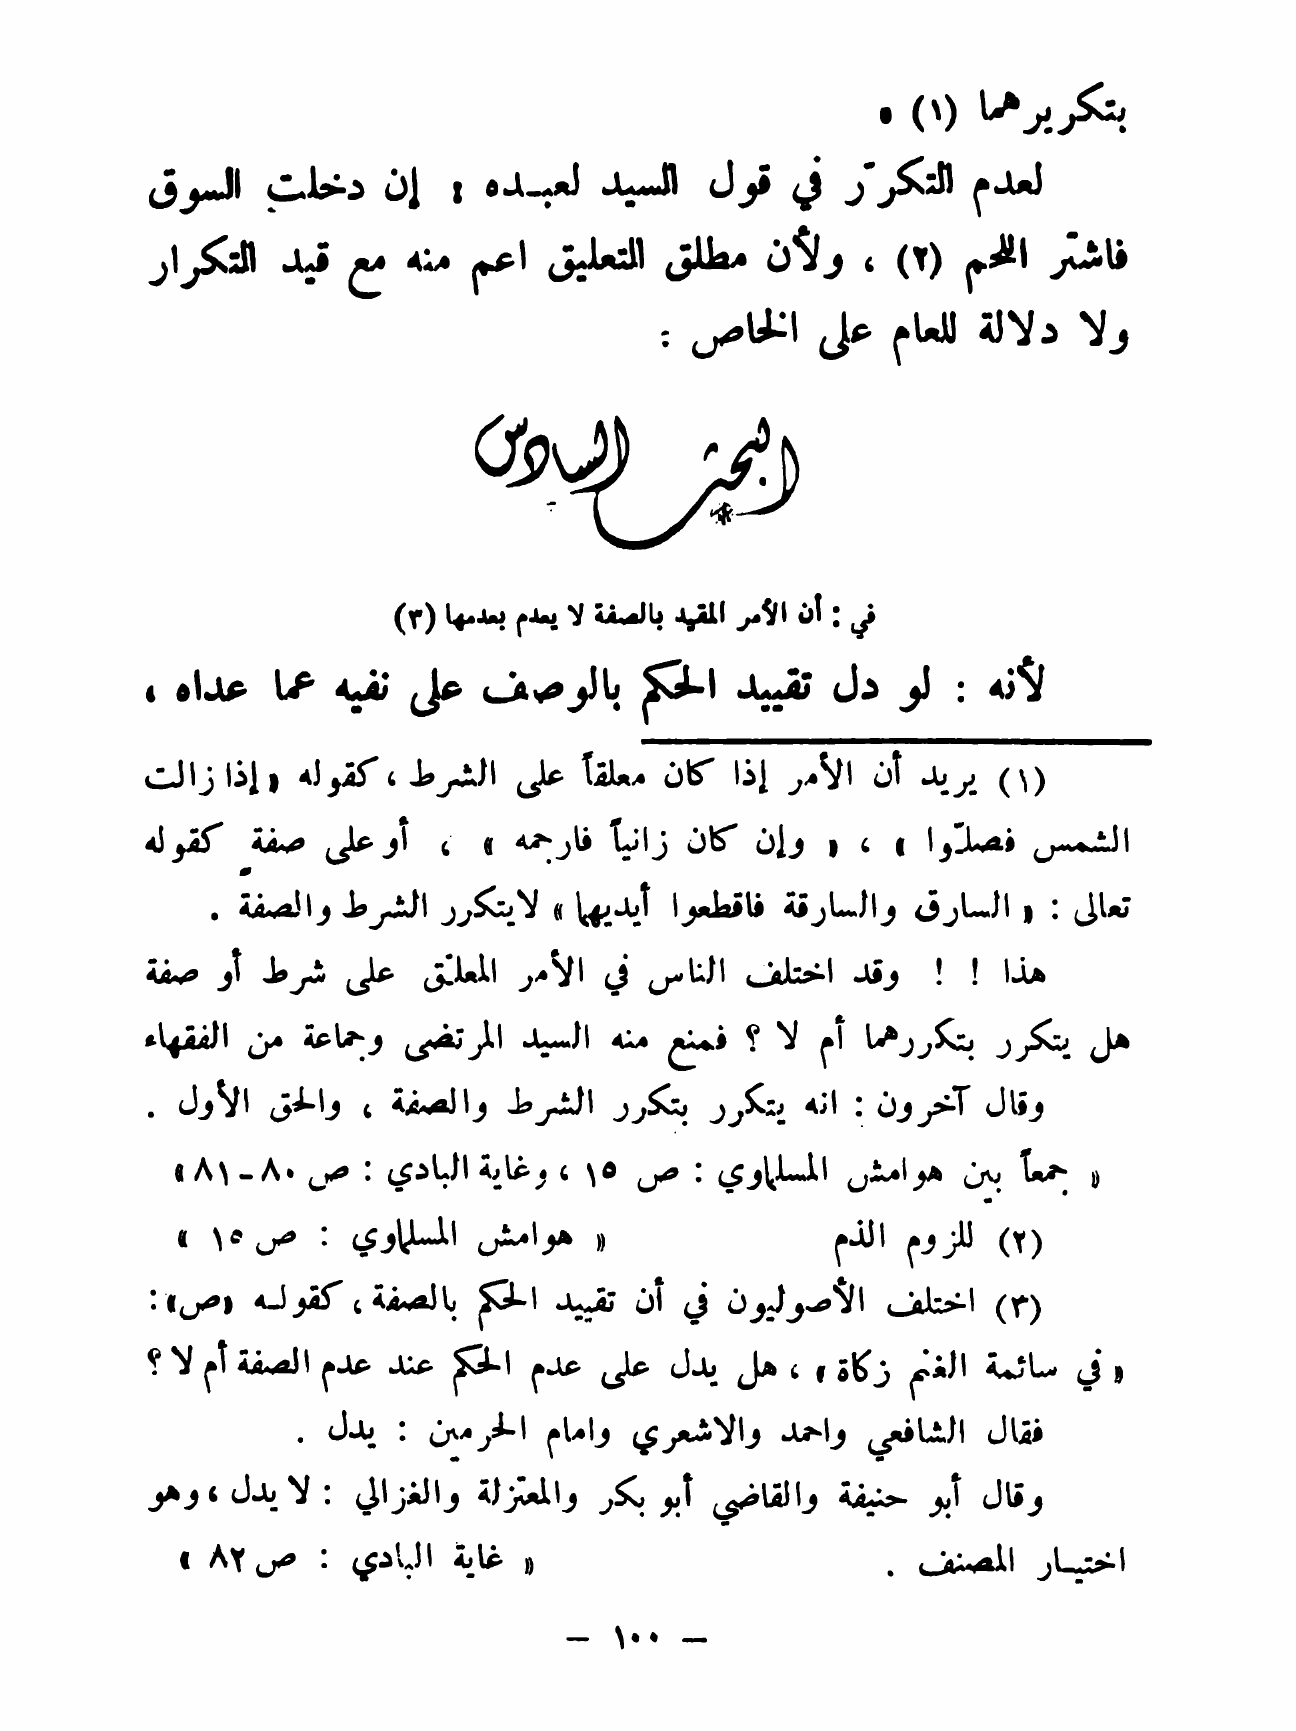 بتكريرهما (١) .
لعدم التكرّر في قول السيد لعبـده : إن دخلت السوق
فاشتر اللحم (٢) ، ولأن مطلق التعليق اعم منه مع قيد التكرار
ولا دلالة للعام على الخاص :
البحث السادس
في : أن الأمر المقيد بالصفة لا يعدم بعدمها (٣)
لأنه : لو دل تقييد الحكم بالوصف على نفيه عما عداه ،
(١) يريد أن الأمر إذا كان معلقاً على الشرط ، كقوله «إذا زالت
الشمس فصلّوا » ، « وإن كان زانياً فارجمه » ، أو على صفة كقوله
تعالى : « السارق والسارقة فاقطعوا أيديهما » لايتكرر الشرط والصفة .
هذا ! ! وقد اختلف الناس في الأمر المعلّق على شرط أو صفة
هل يتكرر بتكررهما أم لا ؟ فمنع منه السيد المرتضى وجماعة من الفقهاء
وقال آخرون : انه يتكرر بتكرر الشرط والصفة ، والحق الأول .
« جمعاً بين هوامش المسلماوي : ص ١٥ ، وغاية البادي : ص ٨٠ - ٨١ »
(٢) للزوم الذم « هوامش المسلماوي : ص ١٥ »
(٣) اختلف الأصوليون في أن تقييد الحكم بالصفة ، كقولـه «ص» :
« في سائمة الغنم زكاة » ، هل يدل على عدم الحكم عند عدم الصفة أم لا ؟
فقال الشافعي واحمد والاشعري وامام الحرمين : يدل .
وقال أبو حنيفة والقاضي أبو بكر والمعتزلة والغزالي : لا يدل ، وهو
اختيـار المصنف . « غاية البادي : ص ٨٢ »
– ١٠٠ –